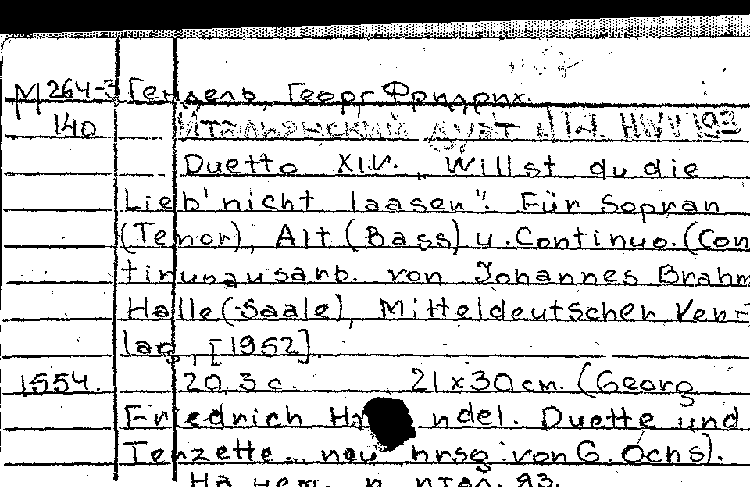 М 264-3 Гендель, Георг Фридрих.
140 Итальянский дуэт №14. HWV 193
Duetto XIV. „Willst du die
Lieb' nicht laasen". Für Sopran
(Tenor), Alt (Bass) u. Continuo. (Con
tinuoausarb. von Johannes Brahm
Halle (Saale), Mitteldeutscher Ver-
lag, [1952]
1554. 20,3 с. 21x30cm. (Georg
Friedrich Händel. Duette und
Terzette.. neu hrsg. von G. Ochs).
На нем. и итал. яз.